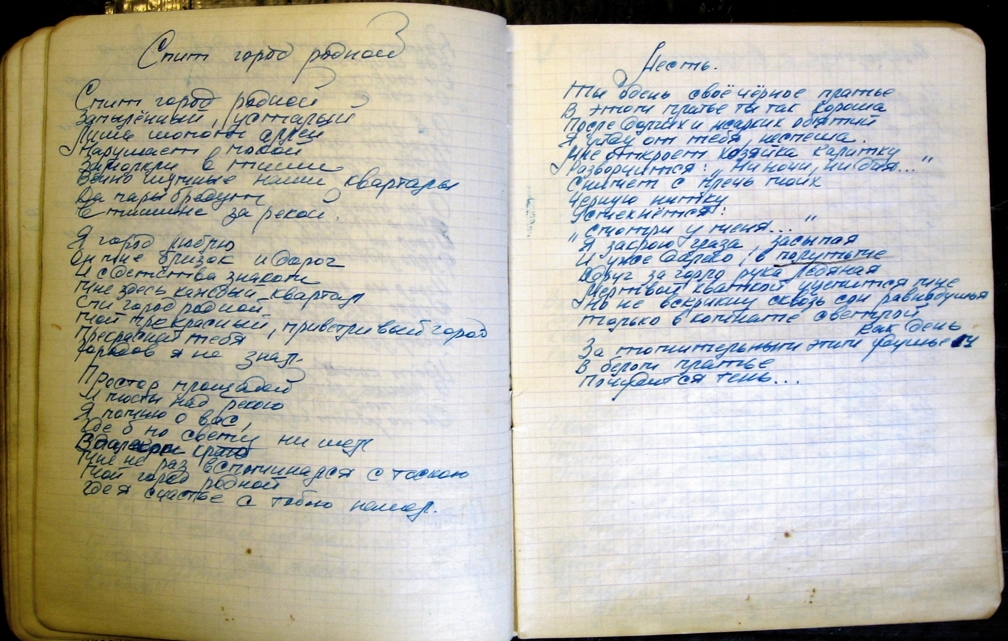 Спит город родной
Спит город родной
Запылённый, усталый
Лишь шопот аллей
Нарушает покой
Замолкли в тиши
Вечно шумные наши кварталы
Да пары бредут
В тишине за рекой.
Я город люблю
Он мне близок и дорог
И с детства знаком
Мне здесь каждый квартал
Спи город родной
Мой прекрасный, приветливый город
Прекрасней тебя
городов я не знал.
Простор площадей
И мосты над рекою
Я помню о вас,
Где б по свету ни шел
В далеком краю
Мне не раз вспоминался с тоскою
Мой город родной
Где я счастье с тобою нашел.
Месть.
Ты одень своё чёрное платье
В этом платье ты так хороша
После долгих и жарких объятий
Я уйду от тебя, не спеша.
Мне откроет хозяйка калитку
Разворчится: „Ни ночи, ни дня..."
Снимет с плечь моих
Черную нитку
Усмехнётся:
„Смотри у меня..."
Я закрою глаза, засыпая
И уже до того, в полутьме
Вдруг за горло рука ледяная
Мёртвой хваткой уцепится мне
Но не вскрикну сквозь сон равнодушья
Только в комнате светлой
как день
За томительным этим удушьем
В белом платье
Почудится тень...